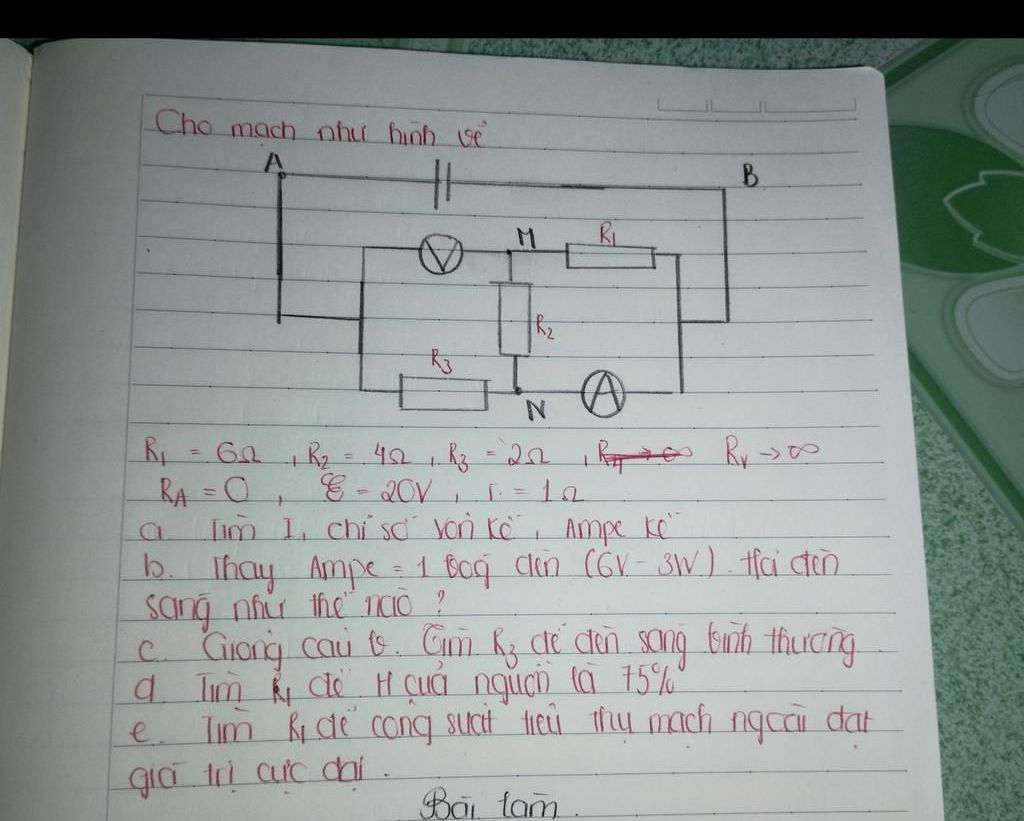 Cho mạch như hình vẽ
A
B
V
M
R₁
R₂
R₃
N
A
R₁ = 6Ω , R₂ = 4Ω , R₃ = 2Ω , R_V → ∞
R_A = 0 , ℰ = 20V , r = 1Ω
a Tìm I, chỉ số vôn kế, Ampe kế
b. Thay Ampe = 1 bóng đèn (6V - 3W). Hỏi đèn
sáng như thế nào ?
c. Giống câu b. Tìm R₃ để đèn sáng bình thường
d Tìm R₁ để H của nguồn là 75%
e. Tìm R₁ để công suất tiêu thụ mạch ngoài đạt
giá trị cực đại.
Bài làm.